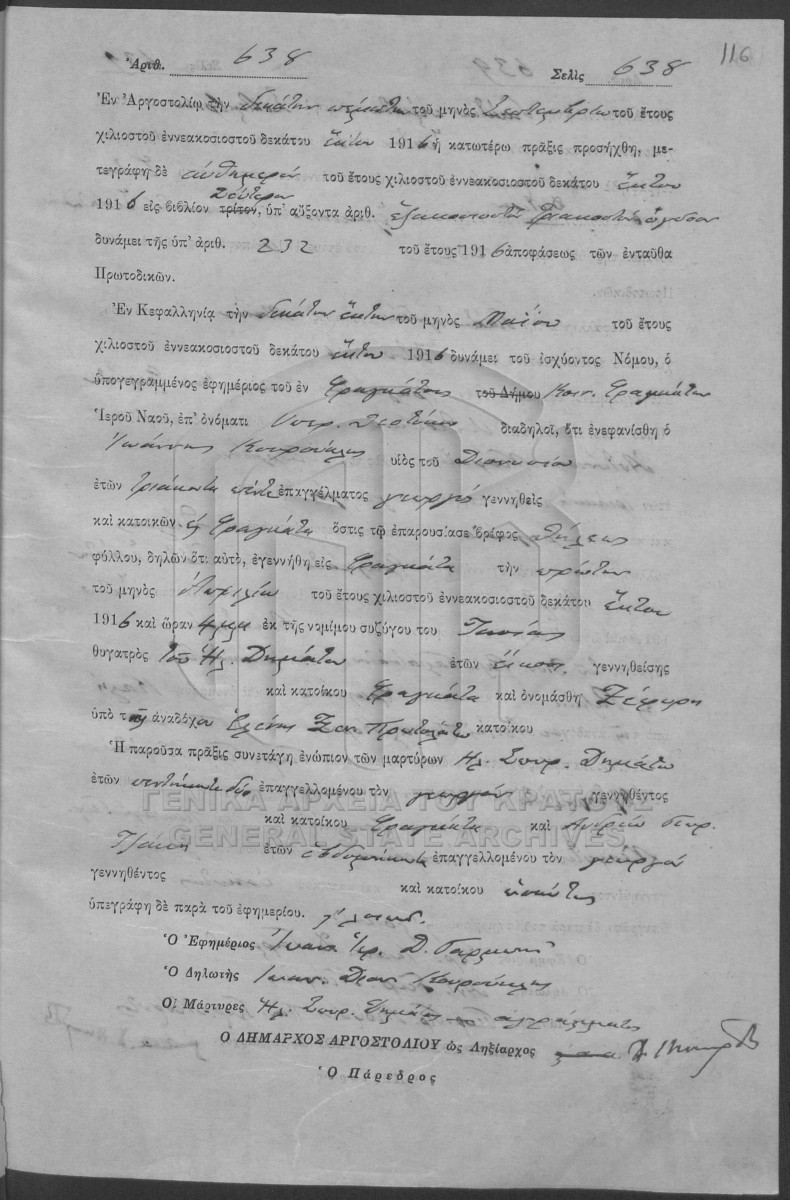 116
Ἀριθ. 638 Σελὶς 638
Ἐν Ἀργοστολίῳ τὴν δεκάτην πέμπτην τοῦ μηνὸς Σεπτεμβρίου τοῦ ἔτους
χιλιοστοῦ ἐννεακοσιοστοῦ δεκάτου ἕκτου 1916 ἡ κατωτέρω πρᾶξις προσήχθη, με-
τεγράφη δὲ αὐθημερὸν τοῦ ἔτους χιλιοστοῦ ἐννεακοσιοστοῦ δεκάτου ἕκτου
δεύτερον
1916 εἰς βιβλίον τρίτον, ὑπ' αὔξοντα ἀριθ. ἑξακοσιοστὸν τριακοστὸν ὄγδοον
δυνάμει τῆς ὑπ' ἀριθ. 232 τοῦ ἔτους 1916 ἀποφάσεως τῶν ἐνταῦθα
Πρωτοδικῶν.
Ἐν Κεφαλληνίᾳ τὴν δεκάτην ἕκτην τοῦ μηνὸς Μαΐου τοῦ ἔτους
χιλιοστοῦ ἐννεακοσιοστοῦ δεκάτου ἕκτου 1916 δυνάμει τοῦ ἰσχύοντος Νόμου, ὁ
ὑπογεγραμμένος ἐφημέριος τοῦ ἐν Φραγκάτοις τοῦ Δήμου Κοιν. Φραγκάτων
Ἱεροῦ Ναοῦ, ἐπ' ὀνόματι Ὑπερ. Θεοτόκου διαδηλοῖ, ὅτι ἐνεφανίσθη ὁ
Ἰωάννης Κουρούκλης υἱὸς τοῦ Διονυσίου
ἐτῶν τριάκοντα πέντε ἐπαγγέλματος γεωργὸς γεννηθεὶς
καὶ κατοικῶν εἰς Φραγκάτα ὅστις τῷ ἐπαρουσίασε βρέφος θήλεος
φύλλου, δηλῶν ὅτι αὐτὸ, ἐγεννήθη εἰς Φραγκάτα τὴν πρώτην
τοῦ μηνὸς Ἀπριλίου τοῦ ἔτους χιλιοστοῦ ἐννεακοσιοστοῦ δεκάτου ἕκτου
1916 καὶ ὥραν ἐκ τῆς νομίμου συζύγου του
θυγατρὸς τοῦ Ἠλ. Δηλμάτου ἐτῶν εἴκοσι γεννηθείσης
καὶ κατοίκου Φραγκάτα καὶ ὀνομάσθη
ὑπὸ τῆς ἀναδόχου Ἑλένης κατοίκου
Ἡ παροῦσα πρᾶξις συνετάγη ἐνώπιον τῶν μαρτύρων Ἠλ. Σπυρ. Δηλμάτου
ἐτῶν πεντήκοντα δύο ἐπαγγελλομένου τὸν γεωργὸν γεννηθέντος
καὶ κατοίκου Φραγκάτα καὶ Ἀνδρέου Γεωρ.
ἐτῶν ἑβδομήκοντα ἐπαγγελλομένου τὸν γεωργὸν
γεννηθέντος καὶ κατοίκου
ὑπεγράφη δὲ παρὰ τοῦ ἐφημερίου.
Ὁ Ἐφημέριος
Ὁ Δηλωτὴς Ἰωαν. Διον. Κουρούκλης
Οἱ Μάρτυρες Ἠλ. Σπυρ. Δηλμάτος
Ο ΔΗΜΑΡΧΟΣ ΑΡΓΟΣΤΟΛΙΟΥ ὡς Ληξίαρχος
Ὁ Πάρεδρος
ΓΕΝΙΚΑ ΑΡΧΕΙΑ ΤΟΥ ΚΡΑΤΟΥΣ
GENERAL STATE ARCHIVES